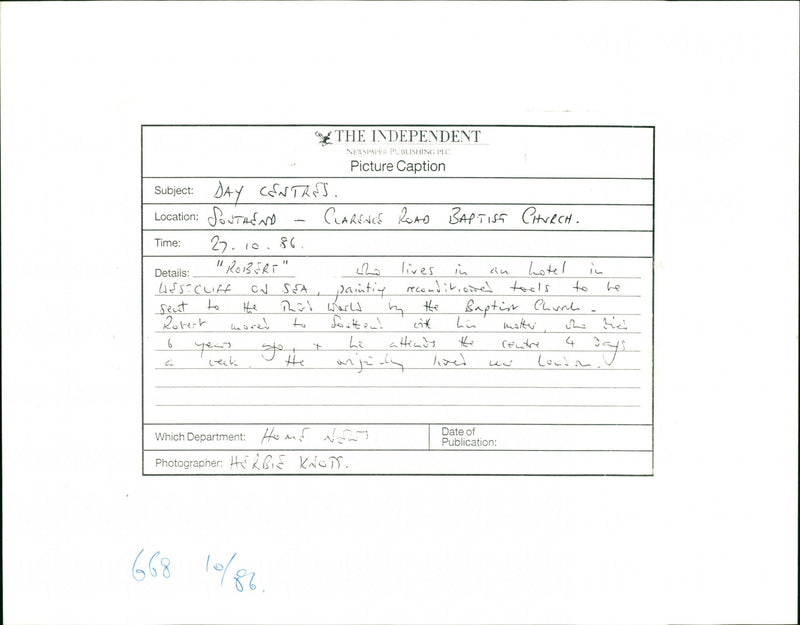 THE INDEPENDENT
NEWSPAPER PUBLISHING PLC
Picture Caption
Subject: DAY CENTRES.
Location: SOUTHEND – CLARENCE ROAD BAPTIST CHURCH.
Time: 27.10.86.
Details: "ROBERT" who lives in an hotel in
WESTCLIFF ON SEA, painting reconditioned tools to be
sent to the Third World by the Baptist Church.
Robert moved to Southend with his mother, who died
6 years ago, + he attends the centre 4 days
a week. He originally lived in London.
Which Department: HOME NEWS
Date of
Publication:
Photographer: HERBIE KNOTT.
668 10/86.